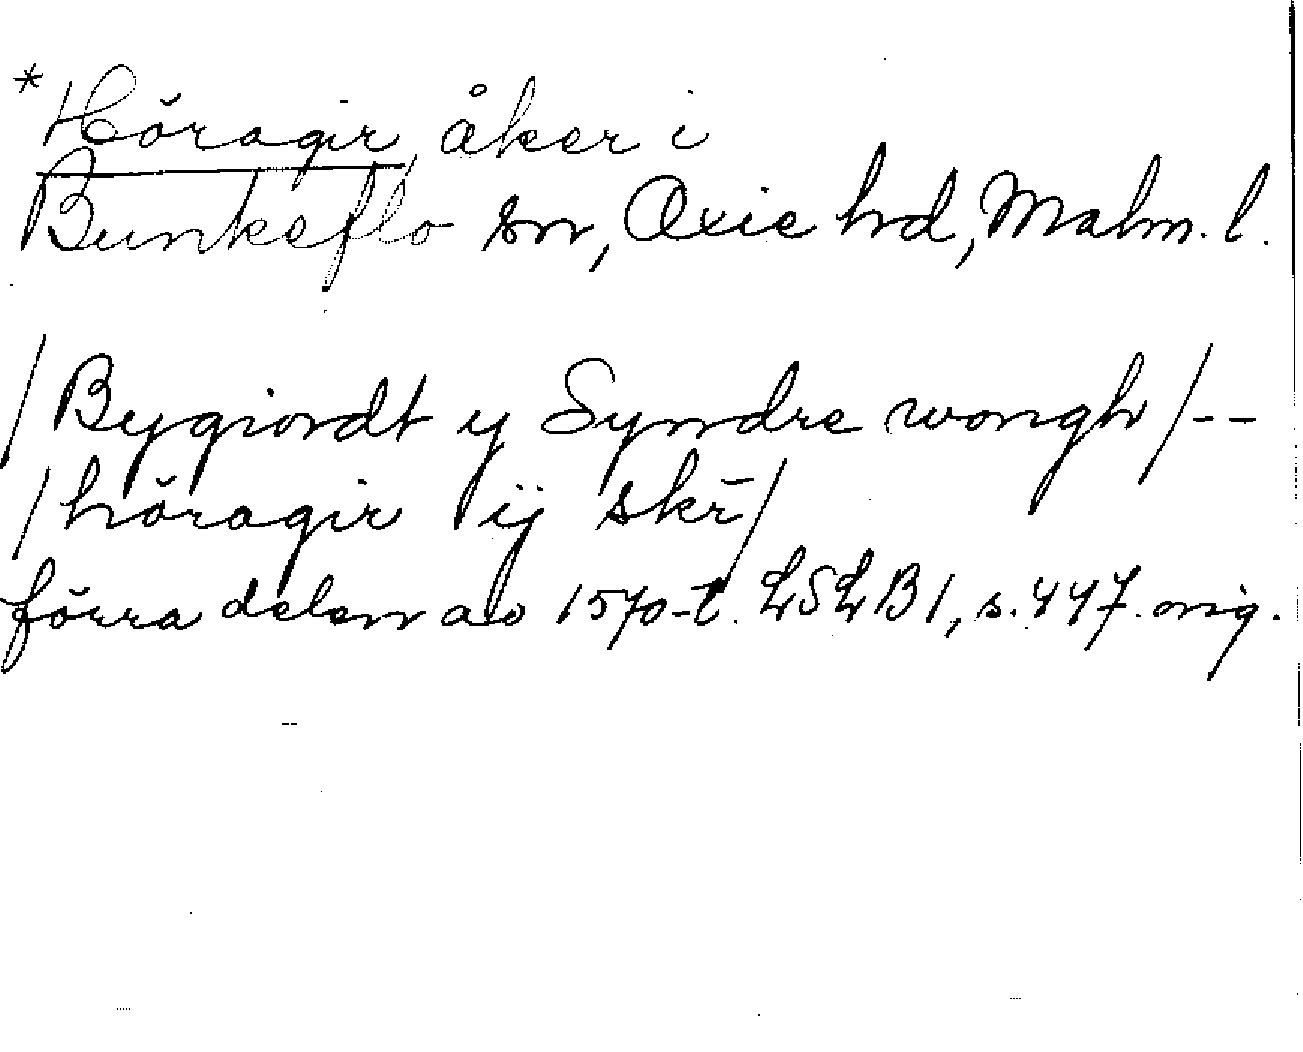 *Höragir, åker i
Bunkeflo sn, Oxie hd, Malm. l.
/Bygiordt y Syndre wongh/--
/höragir ij skr̄/
förra delen av 1570-t. LSLB1, s. 447. orig.